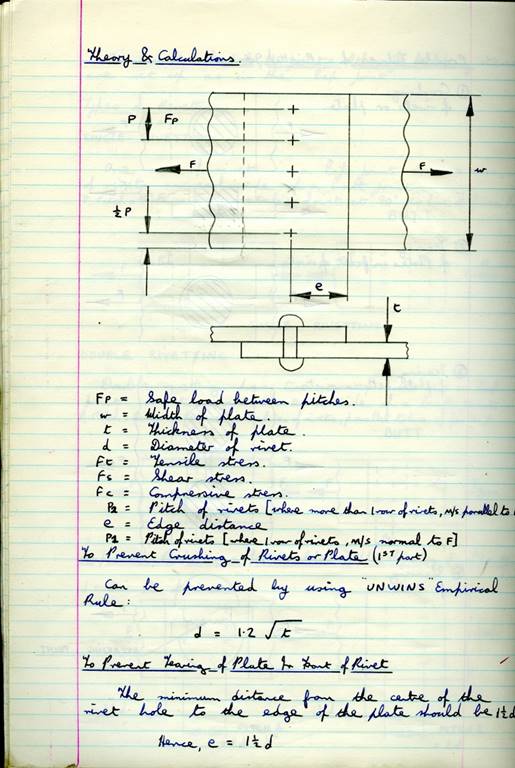 Theory & Calculations.
P
FP
F
F
w
½P
e
t
FP = Safe load between pitches.
w = Width of plate.
t = Thickness of plate.
d = Diameter of rivet.
Ft = Tensile stress.
Fs = Shear stress.
Fc = Compressive stress.
P2 = Pitch of rivets [where more than 1 row of rivets, M/S parallel to
e = Edge distance
P1 = Pitch of rivets [where 1 row of rivets, M/S normal to F]
To Prevent Crushing of Rivets or Plate (1ST part)
Can be prevented by using "UNWINS" Empirical
Rule:
d = 1.2 √t
To Prevent Tearing of Plate In Front of Rivet
The minimum distance from the centre of the
rivet hole to the edge of the plate should be 1½d
Hence, e = 1½d